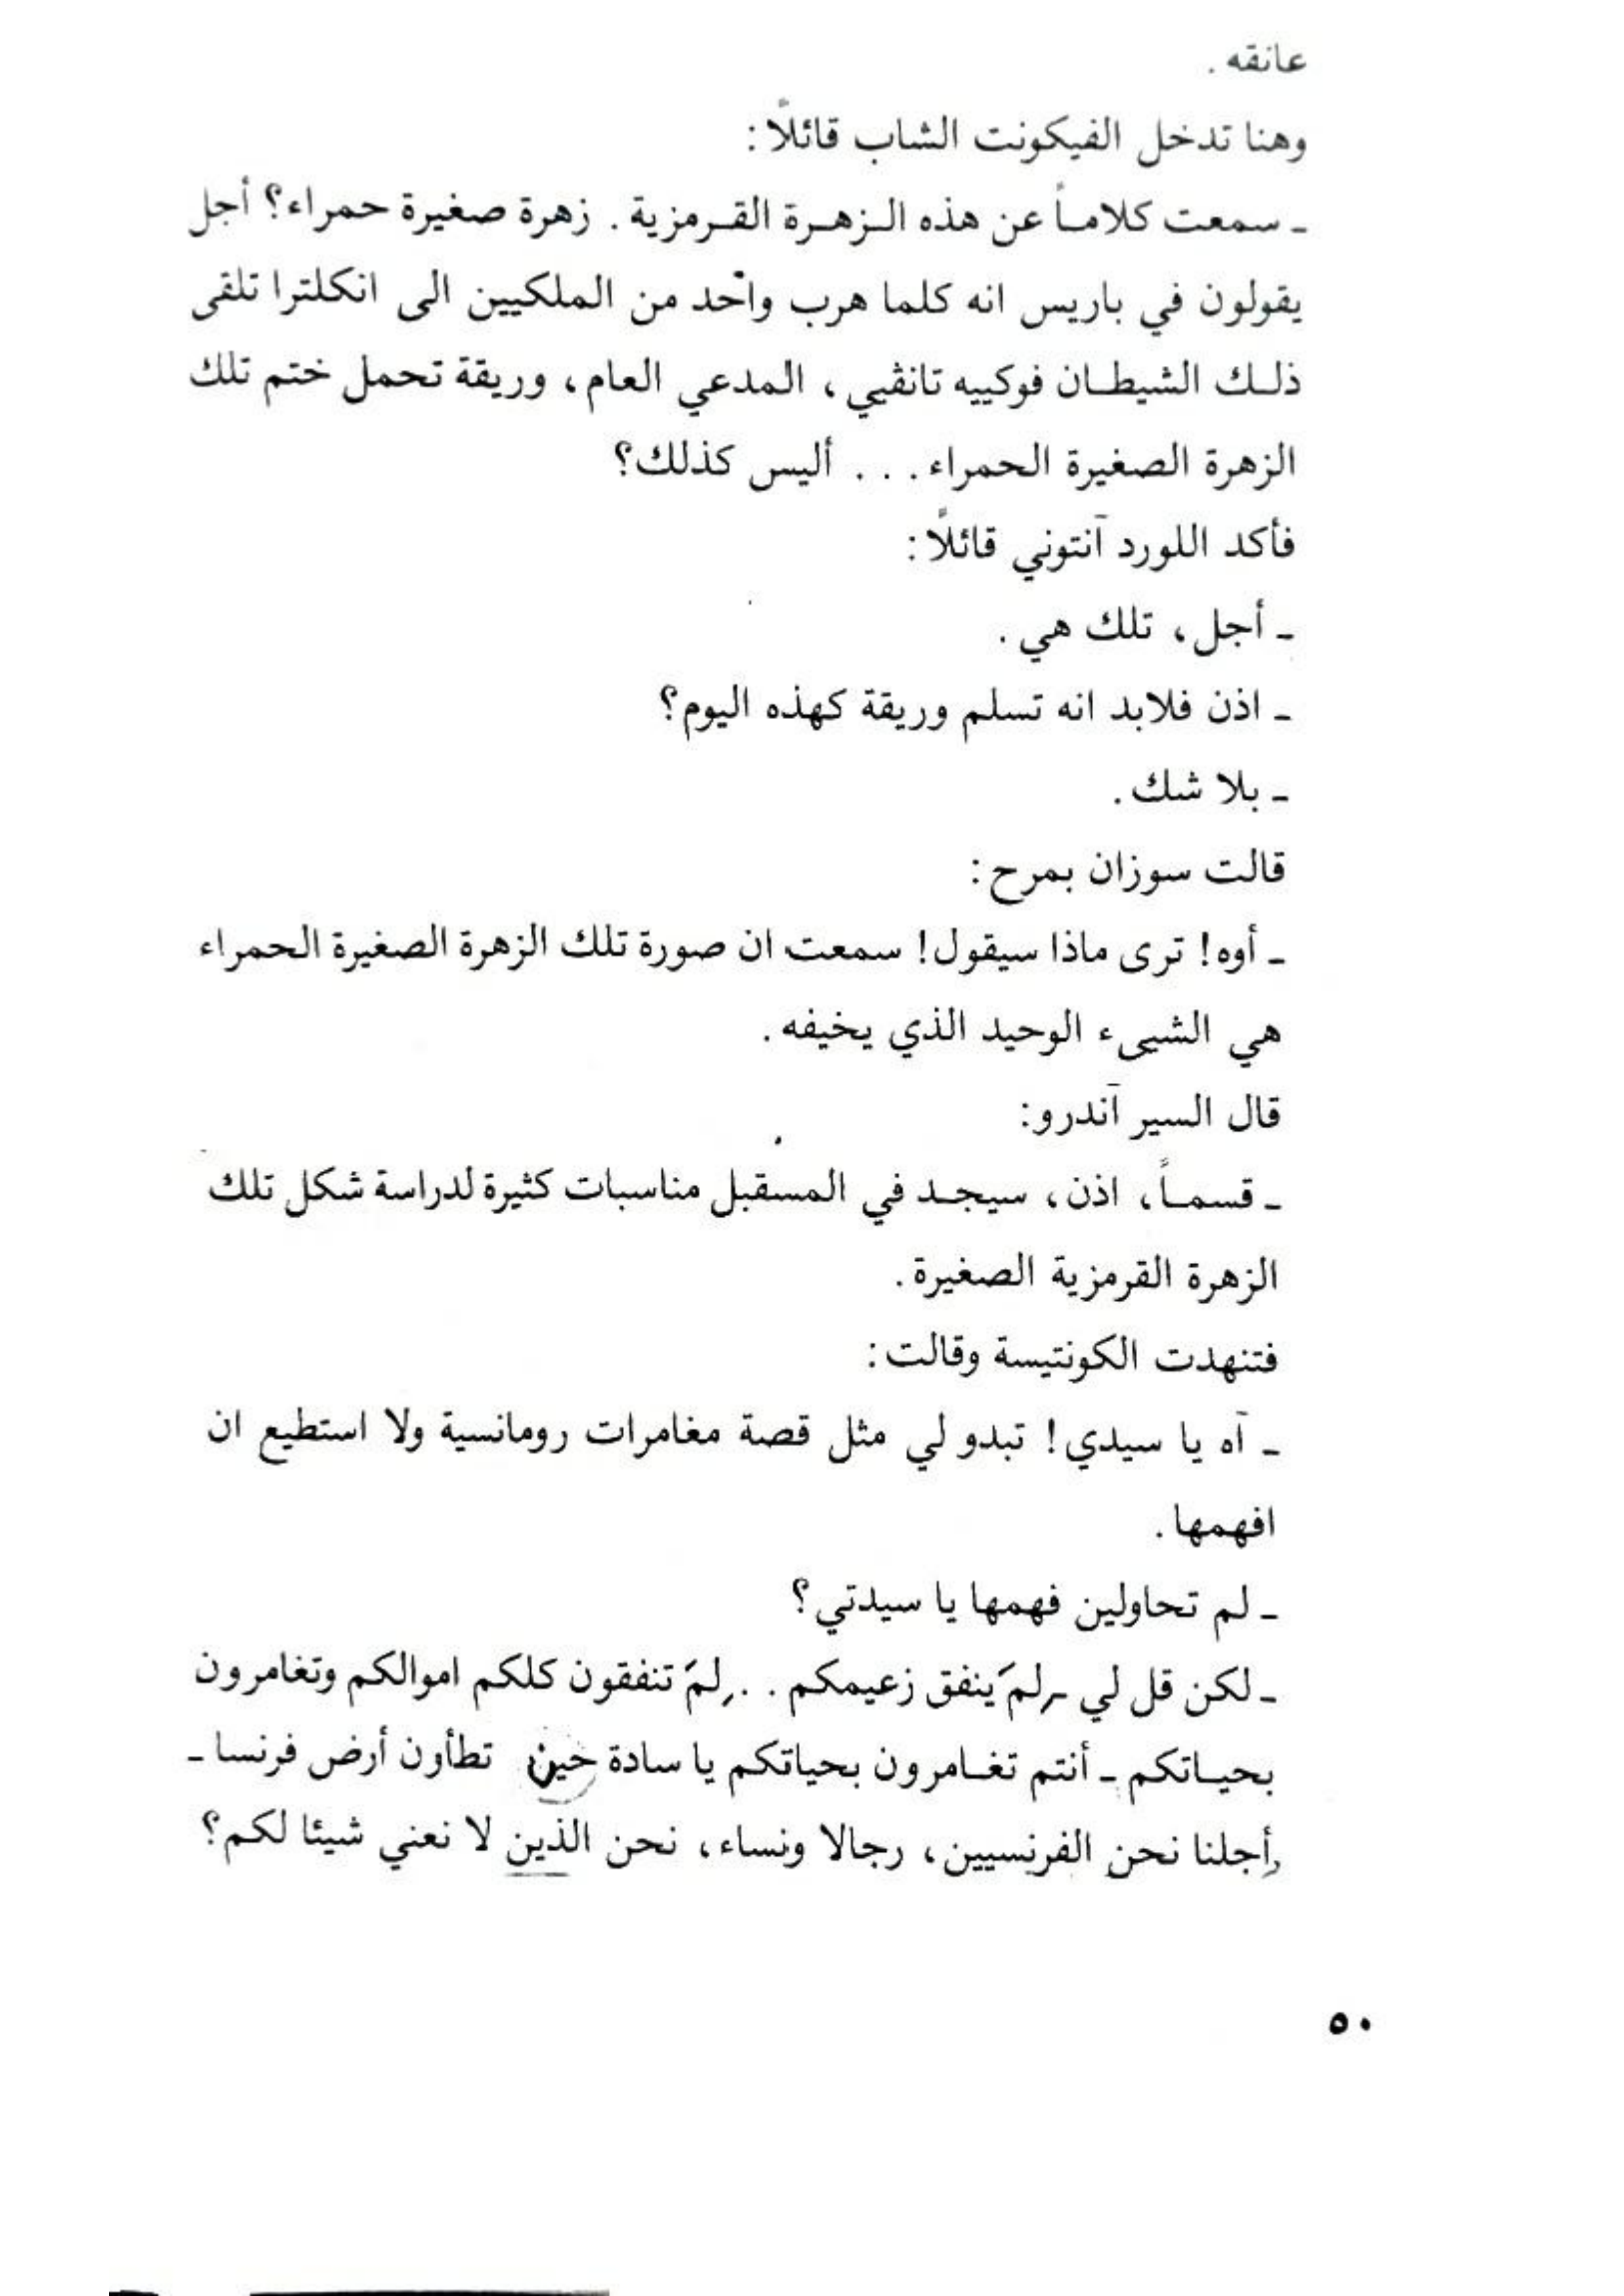 عانقه .
وهنا تدخل الفيكونت الشاب قائلًا :
ـ سمعت كلامـاً عن هذه الـزهـرة القـرمزية . زهرة صغيرة حمراء؟ أجل
يقولون في باريس انه كلما هرب واحد من الملكيين الى انكلترا تلقى
ذلـك الشيطـان فوكييه تانڤيي ، المدعي العام ، وريقة تحمل ختم تلك
الزهرة الصغيرة الحمراء . . . أليس كذلك؟
فأكد اللورد آنتوني قائلًا :
ـ أجل ، تلك هي .
ـ اذن فلابد انه تسلم وريقة كهذه اليوم؟
ـ بلا شك .
قالت سوزان بمرح :
ـ أوه! ترى ماذا سيقول! سمعت ان صورة تلك الزهرة الصغيرة الحمراء
هي الشيىء الوحيد الذي يخيفه .
قال السير آندرو:
ـ قسمـاً ، اذن ، سيجـد في المسقبل مناسبات كثيرة لدراسة شكل تلك
الزهرة القرمزية الصغيرة .
فتنهدت الكونتيسة وقالت :
ـ آه يا سيدي! تبدو لي مثل قصة مغامرات رومانسية ولا استطيع ان
افهمها .
ـ لم تحاولين فهمها يا سيدتي؟
ـ لكن قل لي ـ لِمَ ينفق زعيمكم . . لِمَ تنفقون كلكم اموالكم وتغامرون
بحيـاتكم ـ أنتم تغـامرون بحياتكم يا سادة حين تطأون أرض فرنسا ـ
أجلنا نحن الفرنسيين ، رجالا ونساء ، نحن الذين لا نعني شيئا لكم؟
٥٠